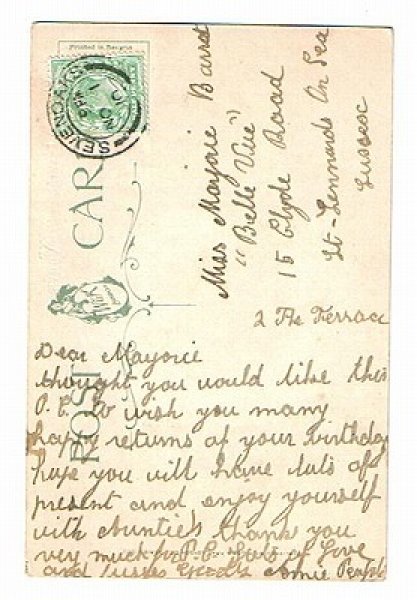 Printed in Bavaria
SEVENOAKS
POST CARD
Miss Marjorie Barrat
"Belle Vue"
15 Clyde Road
St-Lennards On Sea
Sussesc
2 The Terrace
Dear Marjorie
thought you would like this
P.C. to wish you many
happy returns of your birthday
hope you will have lots of
present and enjoy yourself
with Aunties thank you
very much for P.C. Lots of Love
and kisses from